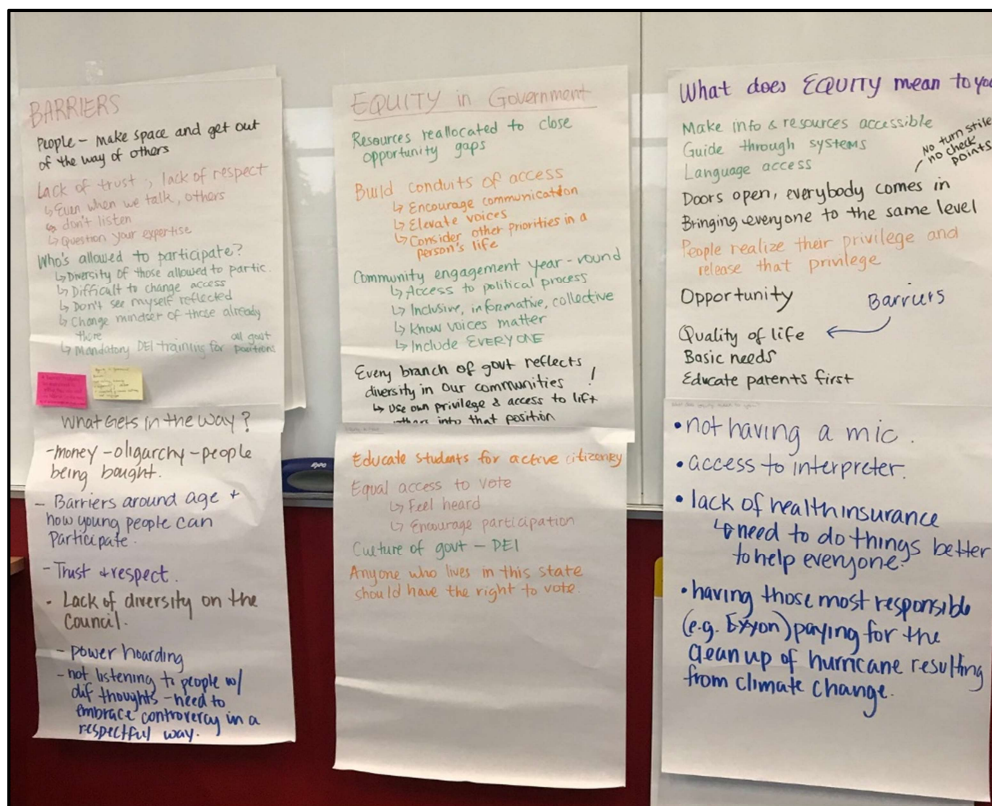 BARRIERS
People - make space and get out
of the way of others
Lack of trust, lack of respect
↳ Even when we talk, others
↳ don't listen
↳ Question your expertise
Who's allowed to participate?
↳ Diversity of those allowed to partic.
↳ Difficult to change access
↳ Don't see myself reflected
↳ Change mindset of those already
there
↳ Mandatory DEI training for all govt positions
What Gets in the Way?
- money - oligarchy - people
being bought.
- Barriers around age +
how young people can
participate.
- Trust + respect.
- Lack of diversity on the
Council.
- power hoarding
- not listening to people w/
dif thoughts - need to
embrace controvercy in a
respectful way.
EQUITY in Government
Resources reallocated to close
opportunity gaps
Build conduits of access
↳ Encourage communication
↳ Elevate voices
↳ Consider other priorities in a
person's life
Community engagement year-round
↳ Access to political process
↳ Inclusive, informative, collective
↳ Know voices matter
↳ Include EVERYONE
Every branch of govt reflects
diversity in our communities!
↳ Use own privilege & access to lift
others into that position
Educate students for active citizenry
Equal access to vote
↳ Feel heard
↳ Encourage participation
Culture of govt - DEI
Anyone who lives in this state
should have the right to vote.
What does EQUITY mean to you
Make info & resources accessible
Guide through systems
Language access
No turn stile
no check
points
Doors open, everybody comes in
Bringing everyone to the same level
People realize their privilege and
release that privilege
Opportunity
Barriers
Quality of life ←
Basic needs
Educate parents first
• not having a mic.
• access to interpreter.
• lack of health insurance
↳ need to do things better
to help everyone.
• having those most responsible
(e.g. Exxon) paying for the
clean up of hurricane resulting
from climate change.